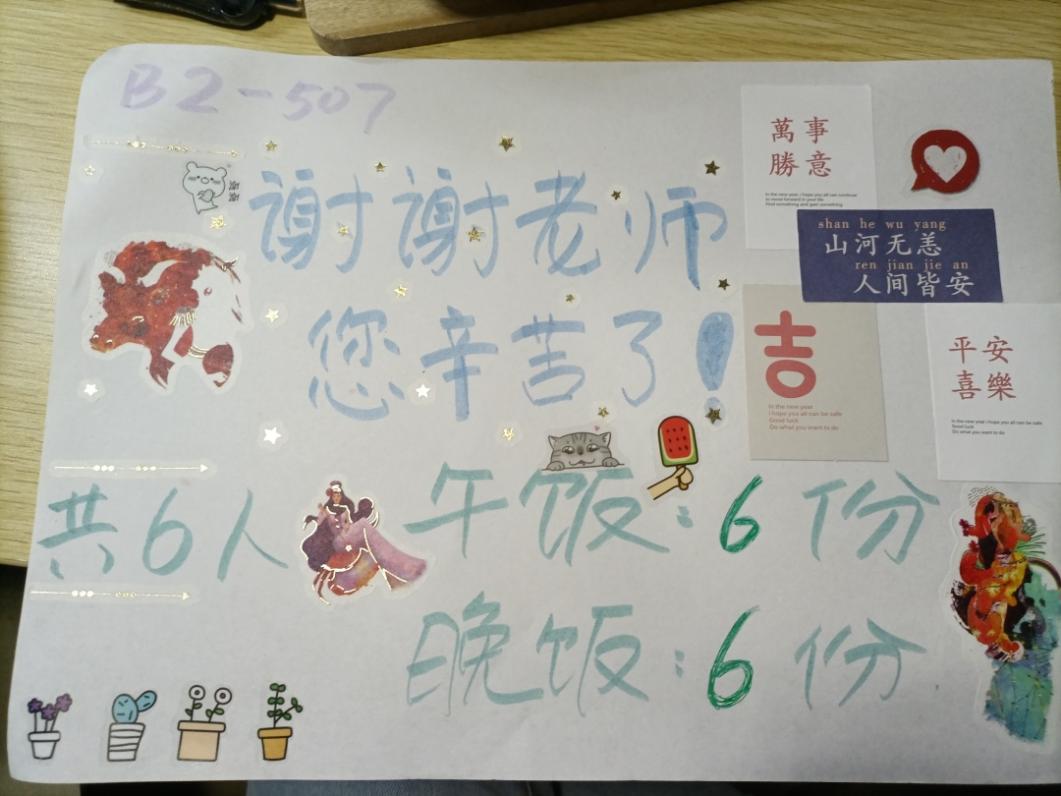 B2-507
謝謝老师
您辛苦了!
共6人
午饭:6份
晚饭:6份
萬事
勝意
In the new year, i hope you all can continue
to move forward in your life
Find something and gain something
shan he wu yang
山河无恙
ren jian jie an
人间皆安
吉
In the new year
i hope you all can be safe
Good luck
Do what you want to do
平安
喜樂
In the new year i hope you all can be safe
Good luck
Do what you want to do